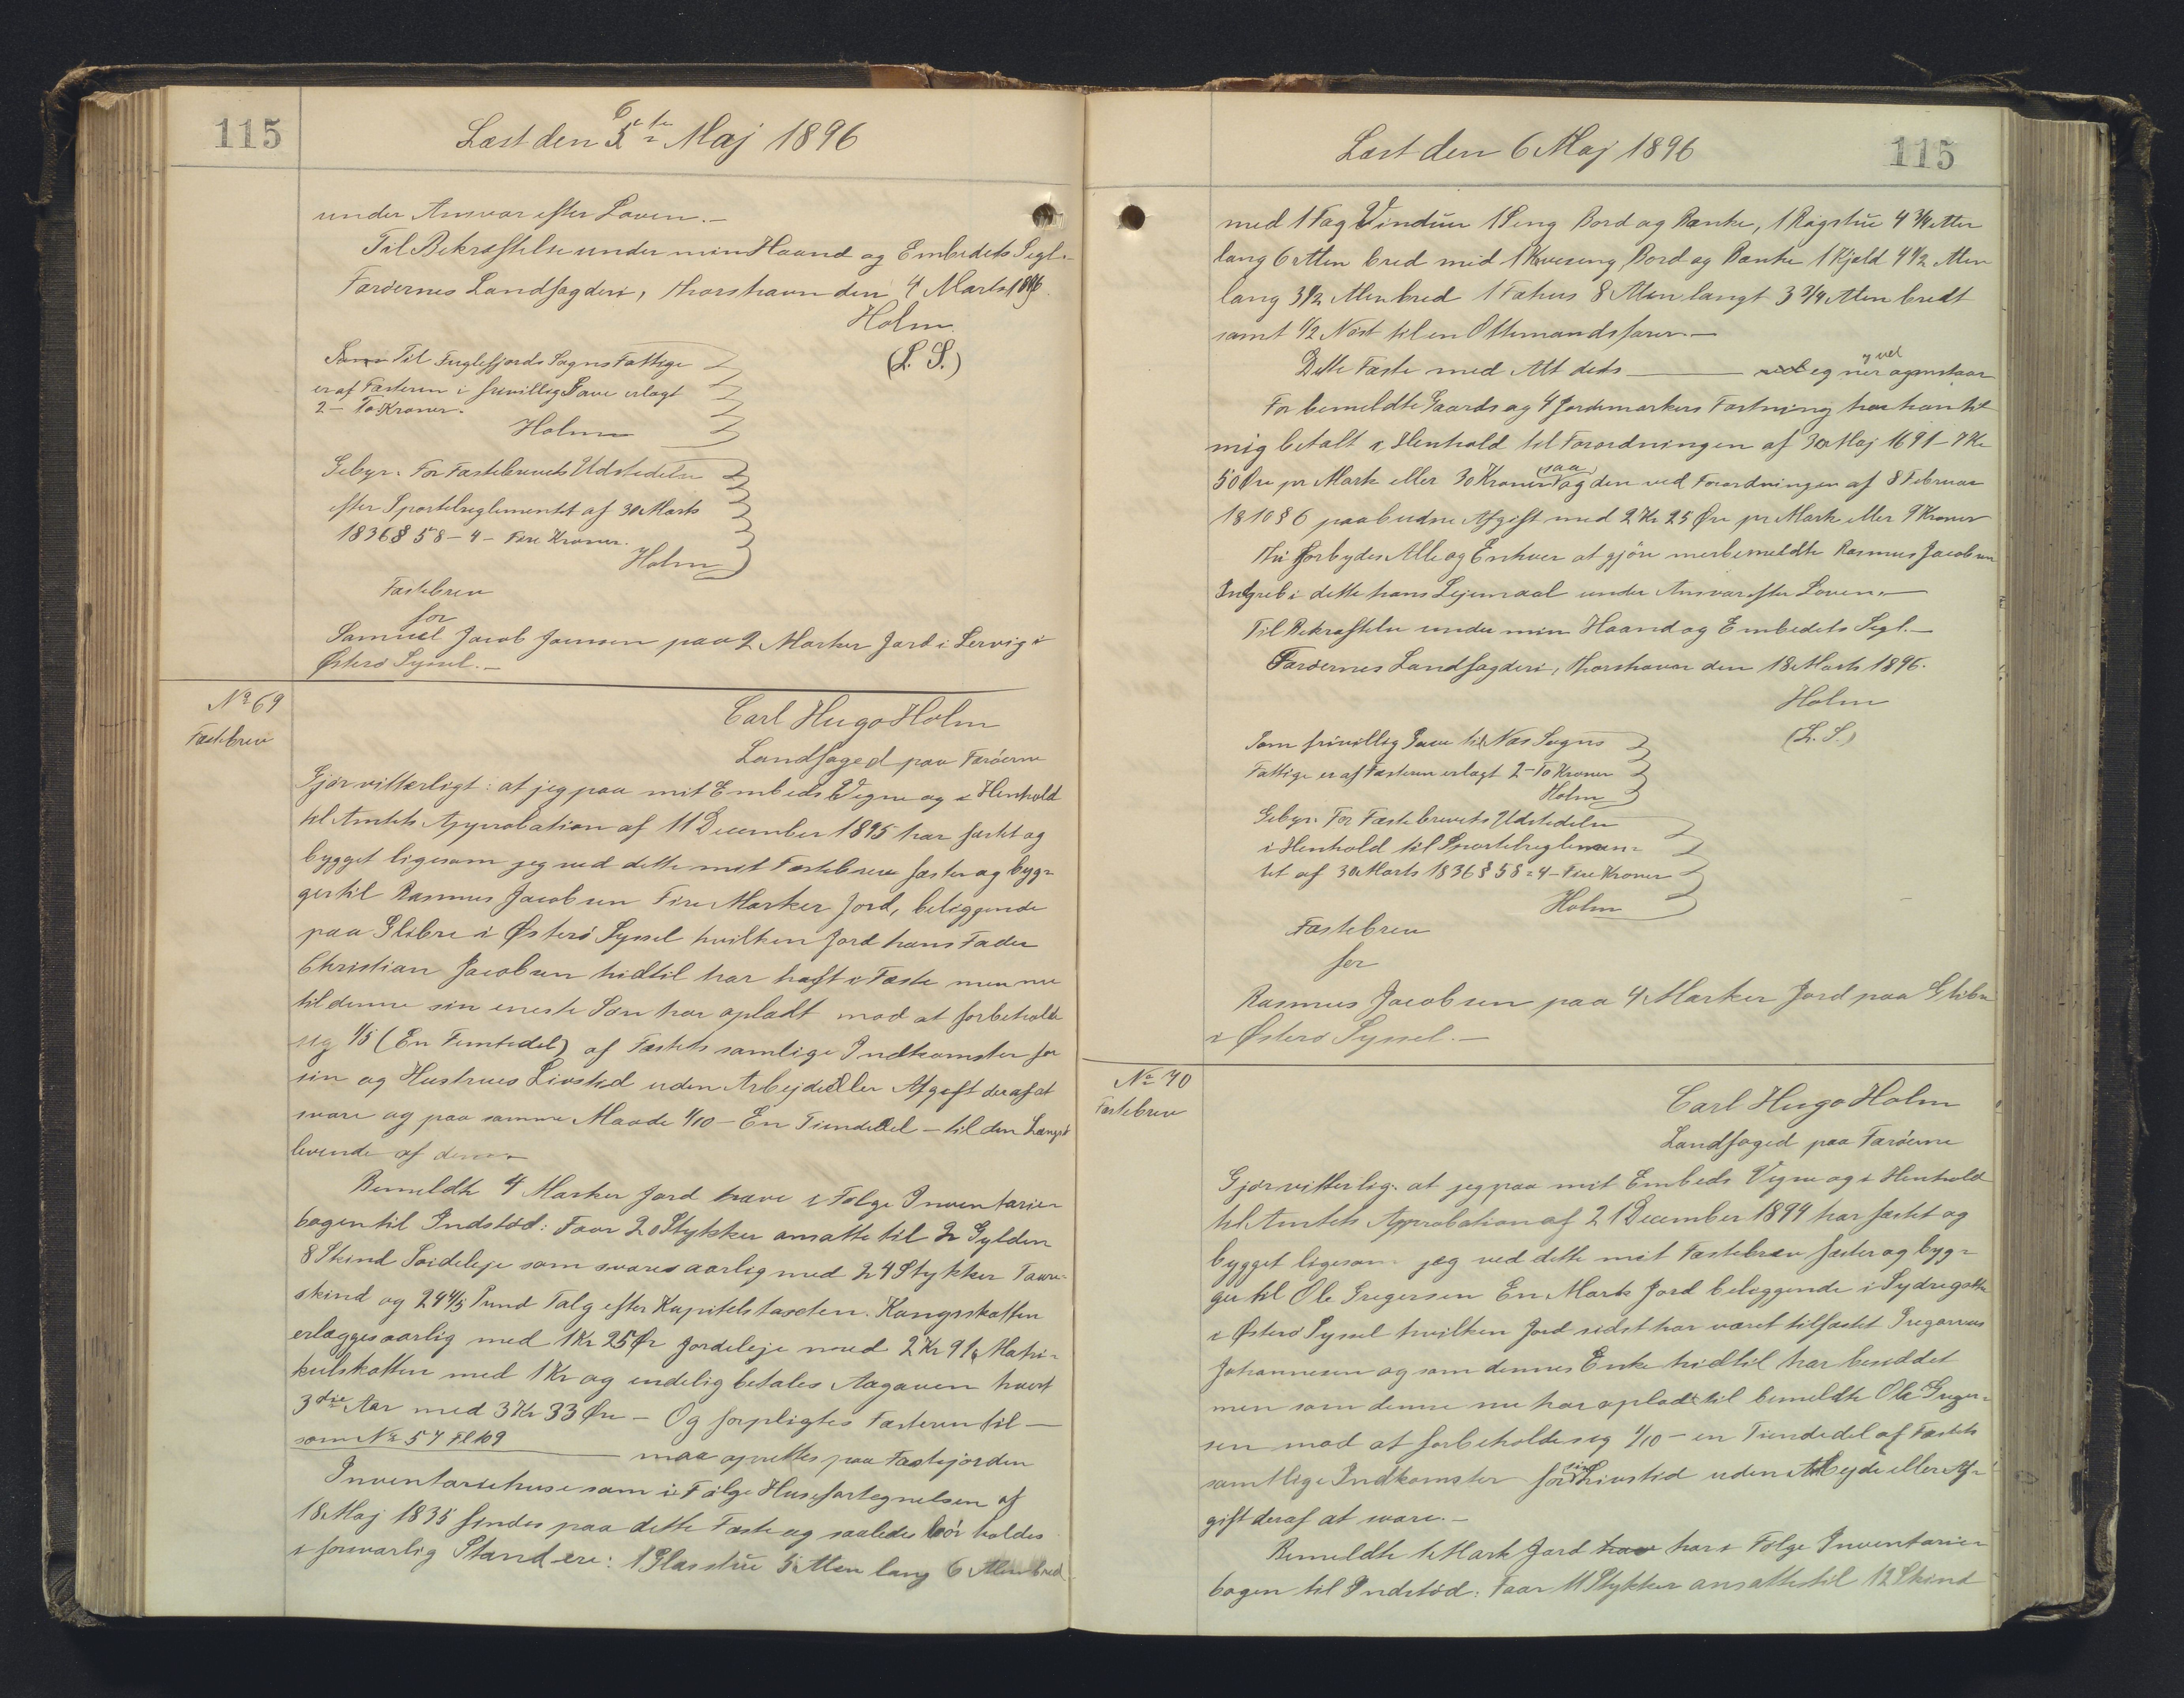 115
Læst den 6te Maj 1896
under Ansvar efter Loven.-
Til Bekræftelse under min Haand og Embedets Segl.-
Færöernes Landfogderi, Thorshavn den 4 Marts 1896.
Holm
(L. S.)
Til Fuglefjords Sogns Fattige
er af Fæsteren i frivillig Gave erlagt
2 - To Kroner.
Holm
Gebyr. For Fæstebrevets Udstedelse
efter Sportelreglementet af 30 Marts
1836 § 58 - 4 - Fire Kroner.
Holm
Fæstebrev
for
Samuel Jacob Joensen paa 2 Marker Jord i Lervig i
Østerø Syssel.-
No 69
Fæstebrev
Carl Hugo Holm
Landfoged paa Færöerne
Gjør vitterligt: at jeg paa mit Embeds Vegne og i Henhold
til Amtets Approbation af 11 December 1895 har fæstet og
bygget ligesom jeg ved dette mit Fæstebrev fæster og byg=
ger til Rasmus Jacobsen Fire Marker Jord, beliggende
paa Glibre i Østerø Syssel hvilken Jord hans Fader
Christian Jacobsen hidtil har haft i Fæste men nu
til denne sin eneste Søn har opladt mod at forbeholde
sig 1/5 (En Femtedel) af Fæstets samlige Indkomster for
sin og Hustrues Livstid uden Arbejde eller Afgift deraf at
svare og paa samme Maade 1/10 - En Tiendedel - til den Længst
levende af
Bemeldte 4 Marker Jord have i Følge Inventarie=
bogen til Indstöd: Faar 20 Stykker ansatte til 2 Gylden
8 Skind Soideleje som svares aarlig med 24 Stykker Faare=
skind og 24 4/5 Pund Talg efter Kapitelstaxten. Kongsskatten
erlægges aarlig med 1 Kr 25 Ør Jordeleje med 2 Kr 91, Matri=
kulskatten med 1 Kr og endelig betales Aagaven hvert
3die Aar med 3 Kr 33 Øre - Og forpligtes Fæsteren til -
som No 57 Fl 109
maa oprettes paa Fæstejorden
Inventariehuse som i Følge Husefortegnelsen af
18 Maj 1835 findes paa dette Fæste og saaledes bör holdes
i forsvarlig Stand ere: 1 Glasstue 5 Alen lang 6 Alen bred
Læst den 6 Maj 1896
115
med 1 Fag Vinduer 1 Seng Bord og Bænke, 1 Røgstue 4 3/4 Alen
lang 6 Alen bred med 1 Kveseng Bord og Bænke 1 Kjeld 4 1/2 Alen
lang 3 1/2 Alen bred 1 Fæhus 8 Alen langt 3 3/4 Alen bredt
samt 1/2 Nøst til en Ottemandsfarer.-
Dette Fæste med Alt dets
For bemeldte Gaards og 4 Jordemarkers Fæstning har han til
mig betalt i Henhold til Forordningen af 30 Maj 1691 - 7 Kr
50 Øre pr Mark eller 30 Kroner (saa) og den ved Forordningen af 8 Februar
1810 § 6 paabudne Afgift med 2 Kr 25 Øre pr Mark eller 9 Kroner
Thi forbydes Alle og Enhver at gjöre merbemeldte Rasmus Jacobsen
Indgreb i dette hans Lejemaal under Ansvar efter Loven.-
Til Bekræftelse under min Haand og Embedets Segl.-
Færöernes Landfogderi, Thorshavn den 18 Marts 1896.
Holm
(L. S.)
Som frivillig Gave til Næs Sogns
Fattige er af Fæsteren erlagt 2 - To Kroner
Holm
Gebyr. For Fæstebrevets Udstedelse
i Henhold til Sportelreglemen=
tet af 30 Marts 1836 § 58 = 4 - Fire Kroner
Holm
Fæstebrev
for
Rasmus Jacobsen paa 4 Marker Jord paa Glibre
i Østerø Syssel.-
No 70
Fæstebrev
Carl Hugo Holm
Landfoged paa Færöerne
Gjør vitterlig: at jeg paa mit Embeds Vegne og i Henhold
til Amtets Approbation af 21 December 1894 har fæstet og
bygget ligesom jeg ved dette mit Fæstebrev fæster og byg=
ger til Ole Gregersen En Mark Jord beliggende i Sydregøte
i Østerø Syssel hvilken Jord sidst har været tilfæstet Gregorius
Johannesen og som dennes Enke hidtil har besiddet
men som denne nu har opladt til bemeldte Ole Greger=
sen mod at forbeholde sig 1/10 - en Tiendedel af Fæstets
samtlige Indkomster for sin Livstid uden Arbejde eller Af=
gift deraf at svare.-
Bemeldte 1 Mark Jord har i Følge Inventarie=
bogen til Indstöd: Faar 11 Stykker ansatte til 12 Skind